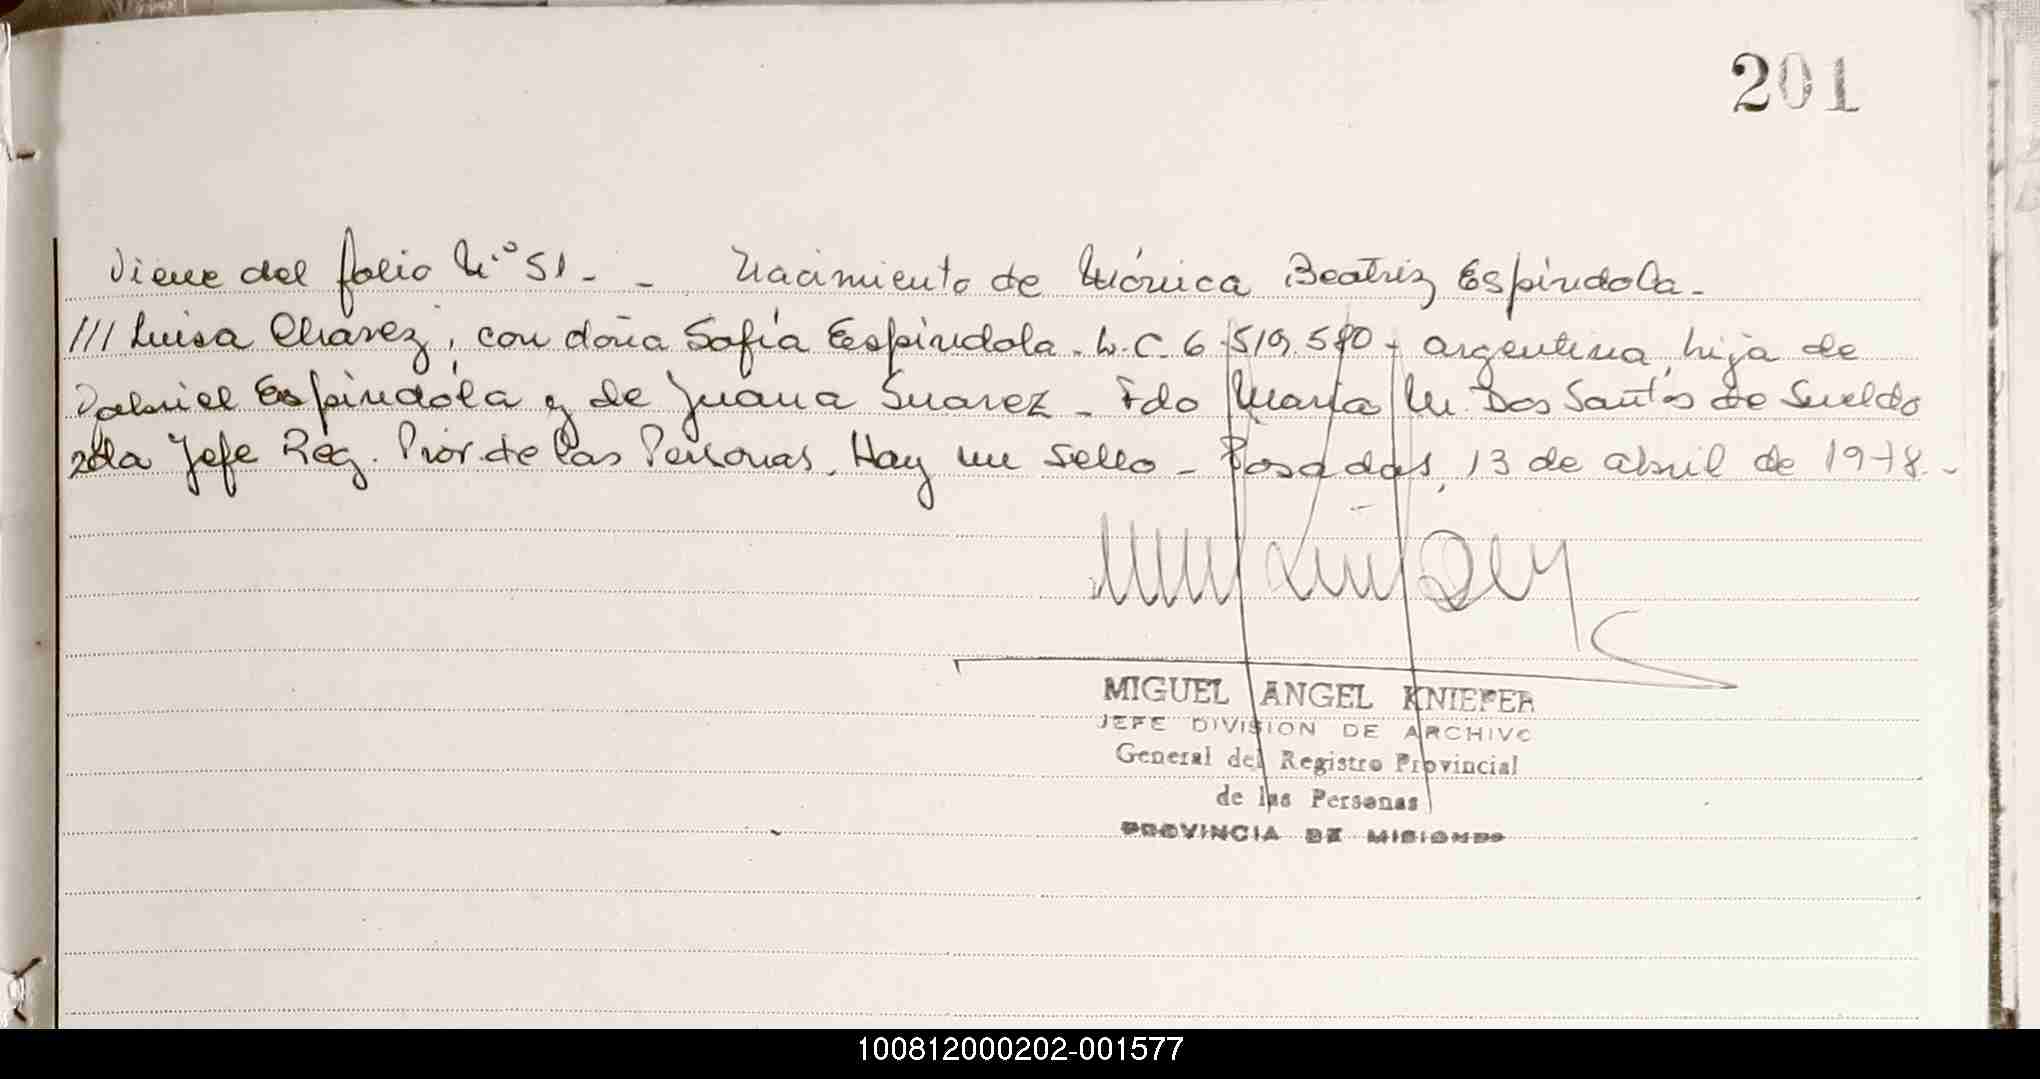 201
Viene del folio N.º 51. - Nacimiento de Mónica Beatriz Espíndola.
/// Luisa Chavez, con doña Sofía Espíndola. L.C. 6.519.580 - argentina, hija de
Gabriel Espíndola y de Juana Suarez - Fdo María M. Dos Santos de Sueldo
2da Jefe Reg. Prov. de las Personas. Hay un sello - Posadas, 13 de abril de 1978.-
MIGUEL ANGEL KNIEFER
JEFE DIVISION DE ARCHIVO
General del Registro Provincial
de las Personas
PROVINCIA DE MISIONES
100812000202-001577